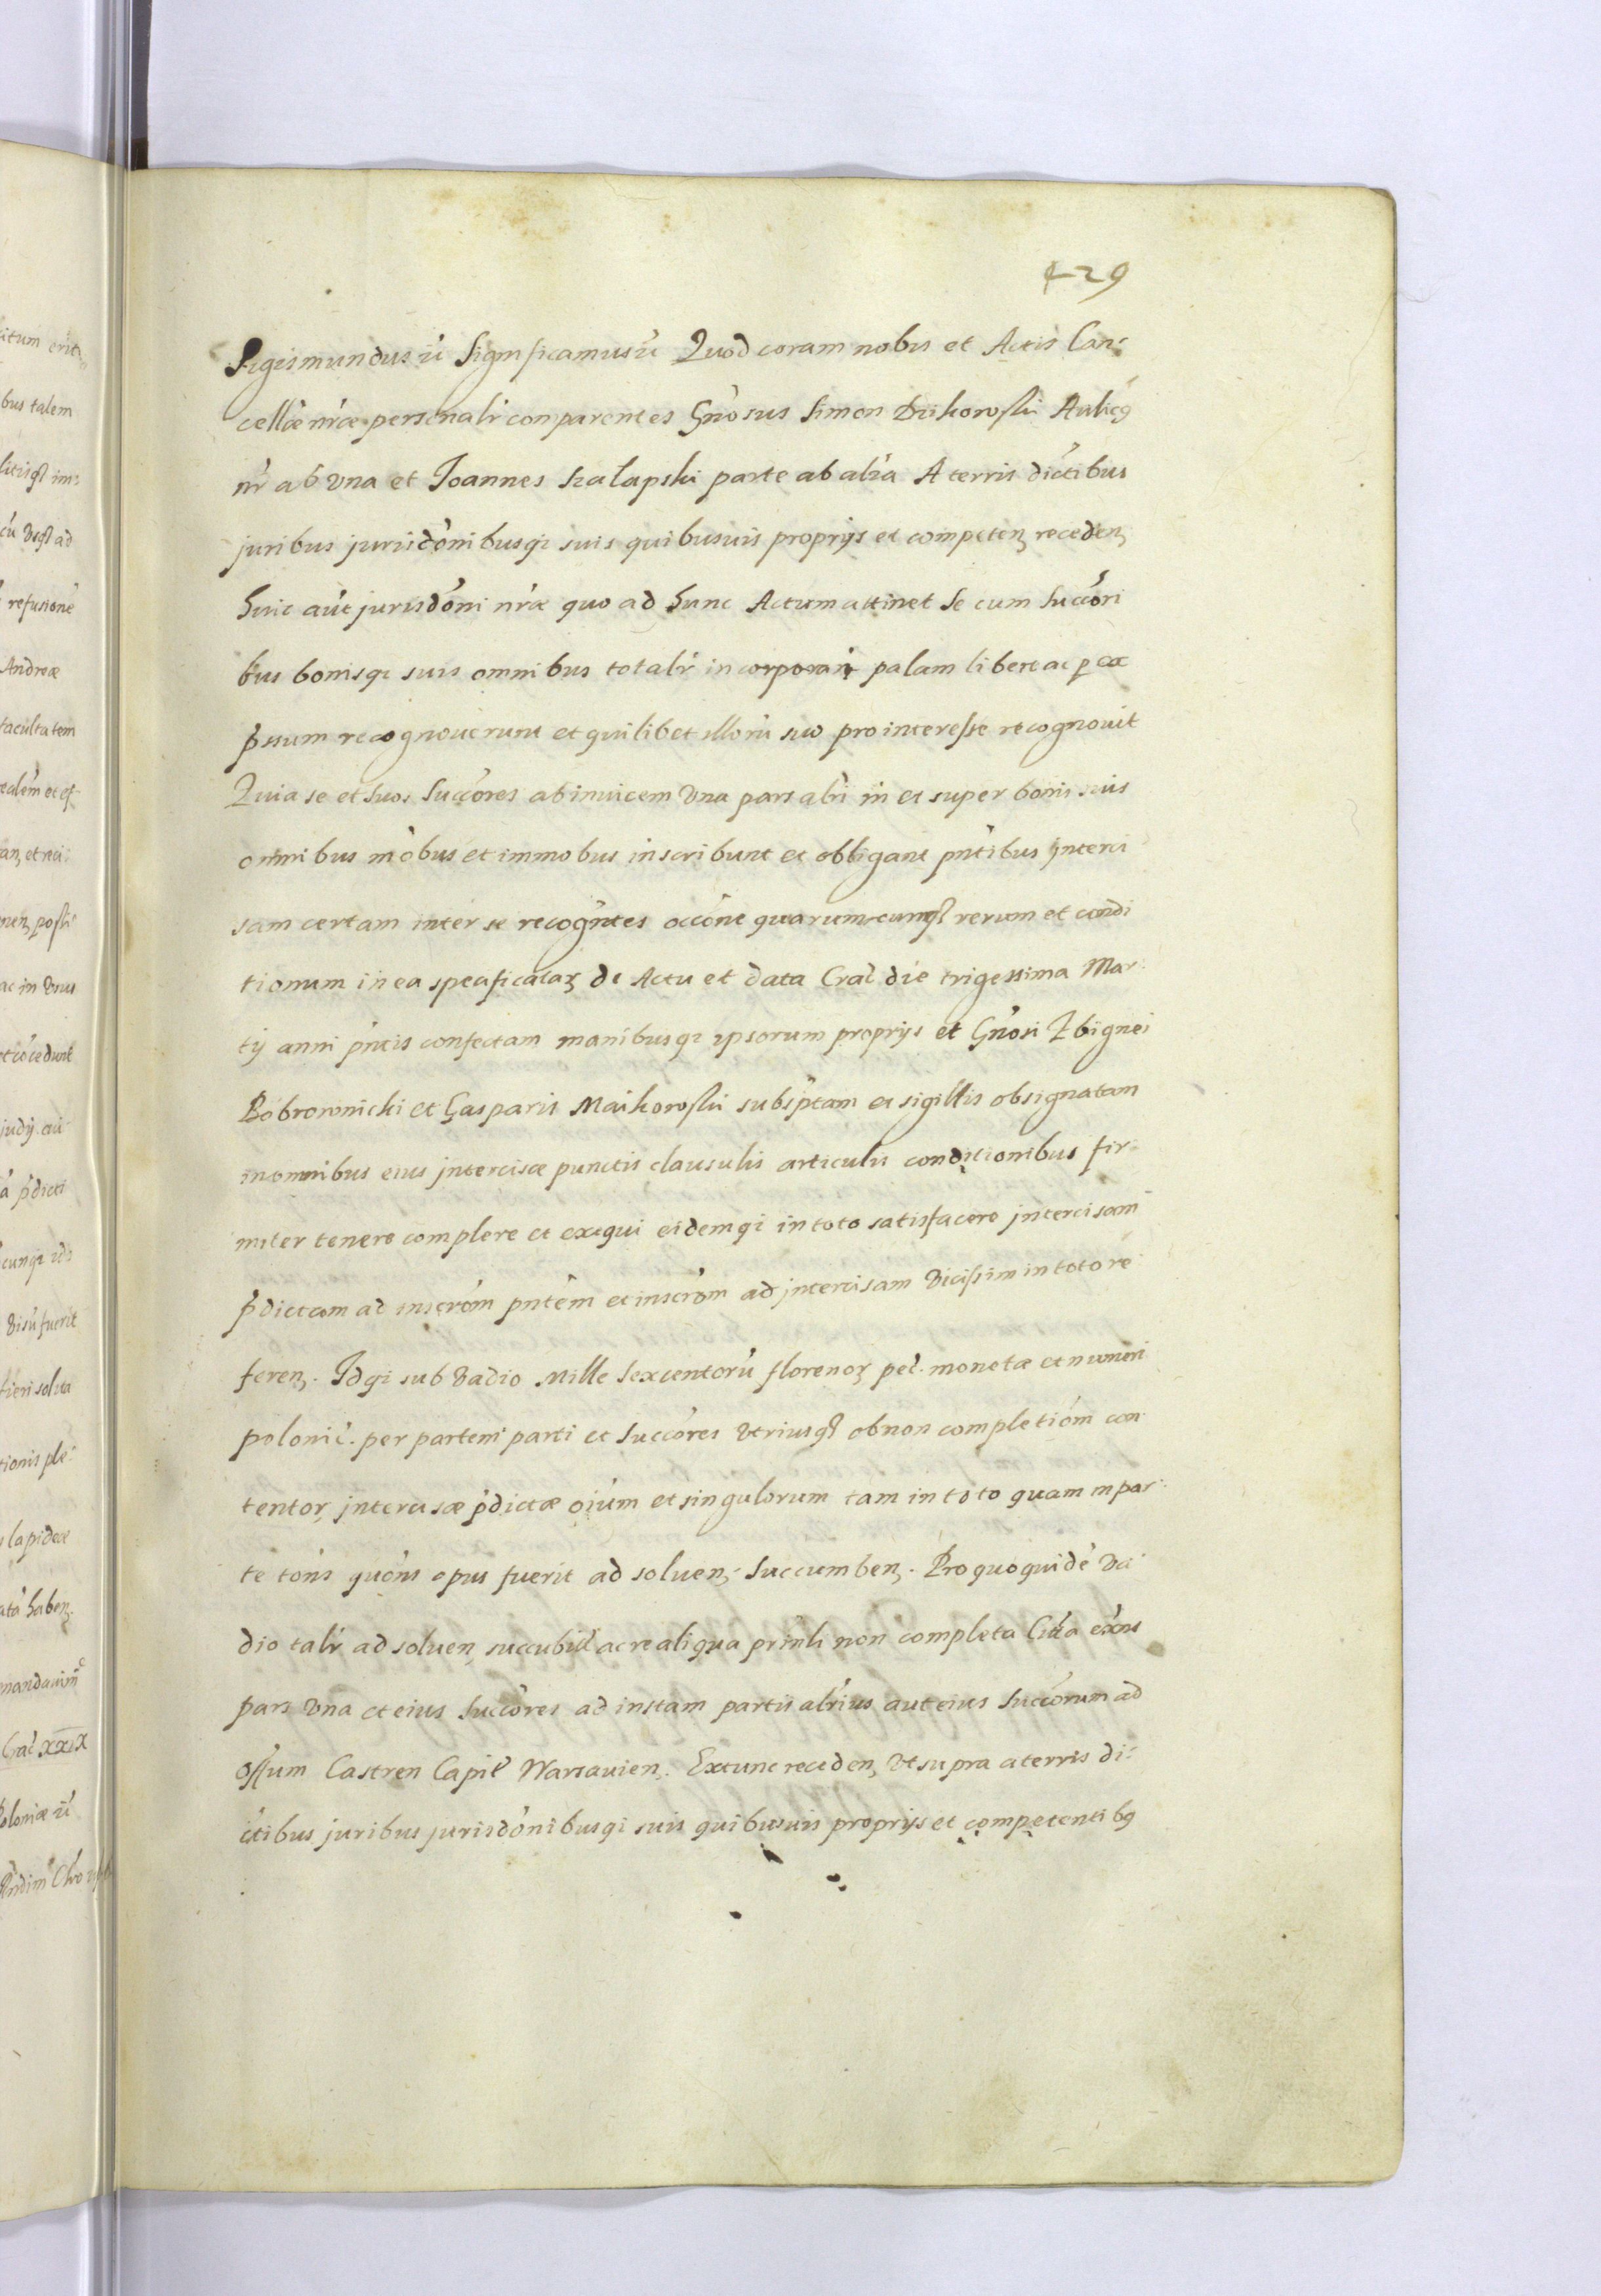 429
Sigismundus ű Significamus ű Quod coram nobis et Actis Can-
cellæ nr̃æ personalr̃ comparentes Gñosus Simon Dzikoroski Aulicq
nr̃ ab vna et Joannes Szalapski parte ab alia A terris dictibus
juribus jurisdõnibusq̃ suis quibusuis proprijs et competenꝫ recedenꝫ
huic aũt jurisdõni nr̃æ quo ad hunc Actum attinet Se cum Succõri
bus bonisq̃ suis omnibus totalr̃ incorporan palam libere ac p ex
p̃ssum recognouerunt et quilibet illorũ suo pro interesse recognouit
Quia se et suos Succõres ab inuicem vna pars alr̃i in et super bonis suis
omnibus mõbus et immobus inscribunt et obligant pñtibus jnterci
sam certam inter se recogñtes occõne quarumcunqꝫ rerum et condi
tionum in ea specificataꝝ de Actu et data Crac̃ die trigessima Mar
tij anni pñtis confectam manibusq̃ ipsorum proprijs et Gñosi Zbignei
Bobrownicki et Gasparis Maikoroski subsp̃tam et sigillis obsignatam
in omnibus eius jntercisæ punctis clausulis articulis conditionibus fir
miter tenere complere et exequi eidemq̃ in toto satisfacere jntercisam
p̃dictam ad inscrõm pñtem et inscrõm ad jntercisam vicissim in toto re
ferenꝫ. Jdq̃ sub vadio Mille Sexcentorũ florenoꝝ pec̃. monetæ et numeri
polonic̃. per partem parti et Succõres vtriusqꝫ ob non completiõm con
tentoꝝ jntercisæ p̃dictæ oĩum et singulorum tam in toto quam in par
te tõns quõns opus fuerit ad soluenꝫ. Succumbenꝫ. Pro quo quidẽ va
dio talr̃ ad soluenꝫ succubit̃ ac re aliqua prĩnli non completa Citta exñs
pars vna et eius Succõres ad instam partis alr̃ius aut eius Succõrum ad
Offum Castren Capiẽ Warsauienꝫ. Extunc recedenꝫ vt supra a terris di
ctibus juribus jurisdõnibusq̃ suis quibusuis proprijs et competentibq